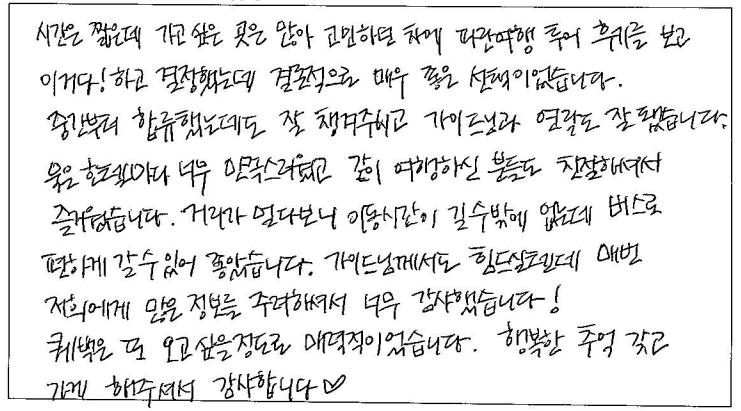 시간은 짧은데 가고 싶은 곳은 많아 고민하던 차에 파란여행 투어 후기를 보고
이거다! 하고 결정했는데 결론적으로 매우 좋은 선택이었습니다.
중간부터 합류했는데도 잘 챙겨주시고 가이드님과 연락도 잘 됐습니다.
묵은 호텔마다 너무 만족스러웠고 같이 여행하신 분들도 친절하셔서
즐거웠습니다. 거리가 멀다보니 이동시간이 길수밖에 없는데 버스로
편하게 갈 수 있어 좋았습니다. 가이드님께서도 힘드실텐데 매번
저희에게 많은 정보를 주려하셔서 너무 감사했습니다!
퀘벡은 또 오고 싶을정도로 매력적이었습니다. 행복한 추억 갖고
가게 해주셔서 감사합니다♡